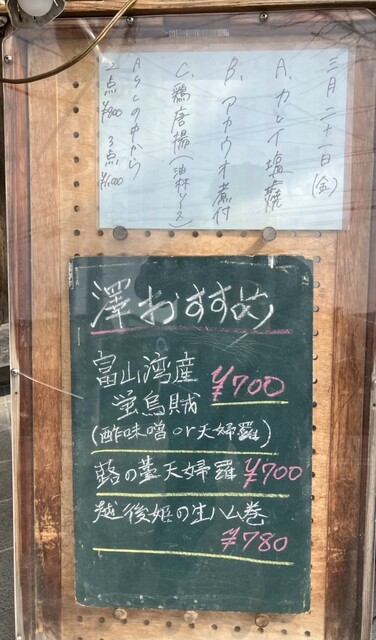 三月二十一日(金)
A. カレイ塩焼
B. アカウオ煮付
C. 鶏唐揚(油林ソース)
A〜Cの中から
2点¥800 3点¥1,000
澤おすすめ
富山湾産 ¥700
蛍烏賊
(酢味噌or天婦羅)
蕗の薹天婦羅 ¥700
越後姫の生ハム巻
¥780